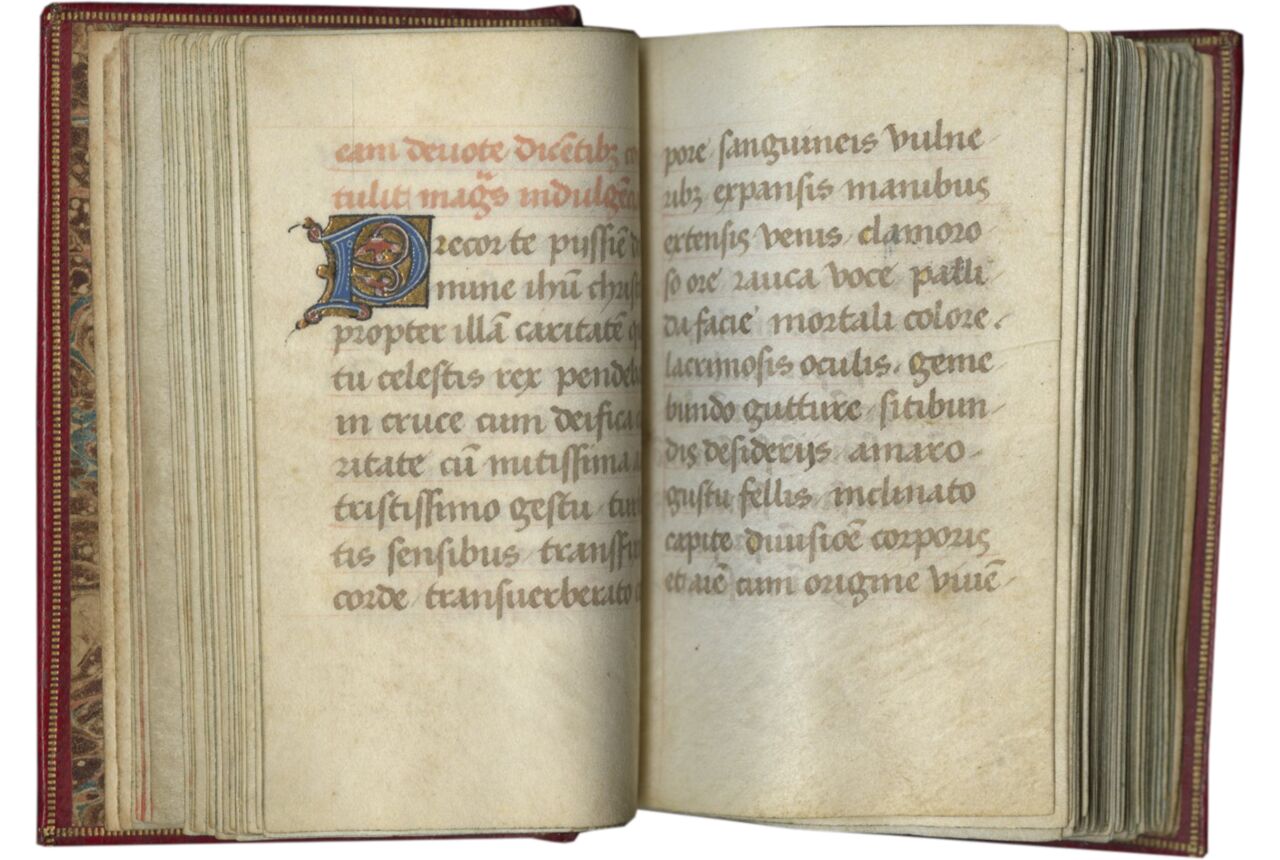 eam deuote dicētibꝫ co
tulit magͣs indulgēn
Precor te pijſſiē do
mine ihū chriſt
propter illā caritatē q
tu celeſtis rex pendeb
in cruce cum deifica c
ritate cū mitiſſima a
triſtiſſimo geſtu tur
tis ſenſibus tranſfix
corde tranſuerberato c
pore ſanguineis vulne
ribꝫ expanſis manibus
extenſis venis clamoro
ſo ore rauca voce palli
da facie mortali colore.
lacrimoſis oculis. geme
bundo gutture ſitibun
dis deſiderijs amaro
guſtu fellis inclinato
capite diuiſiōe corporis
et aīē cum origine viuē